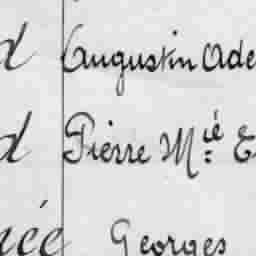 d Augustin Ade
d Pierre M.ié E
née Georges